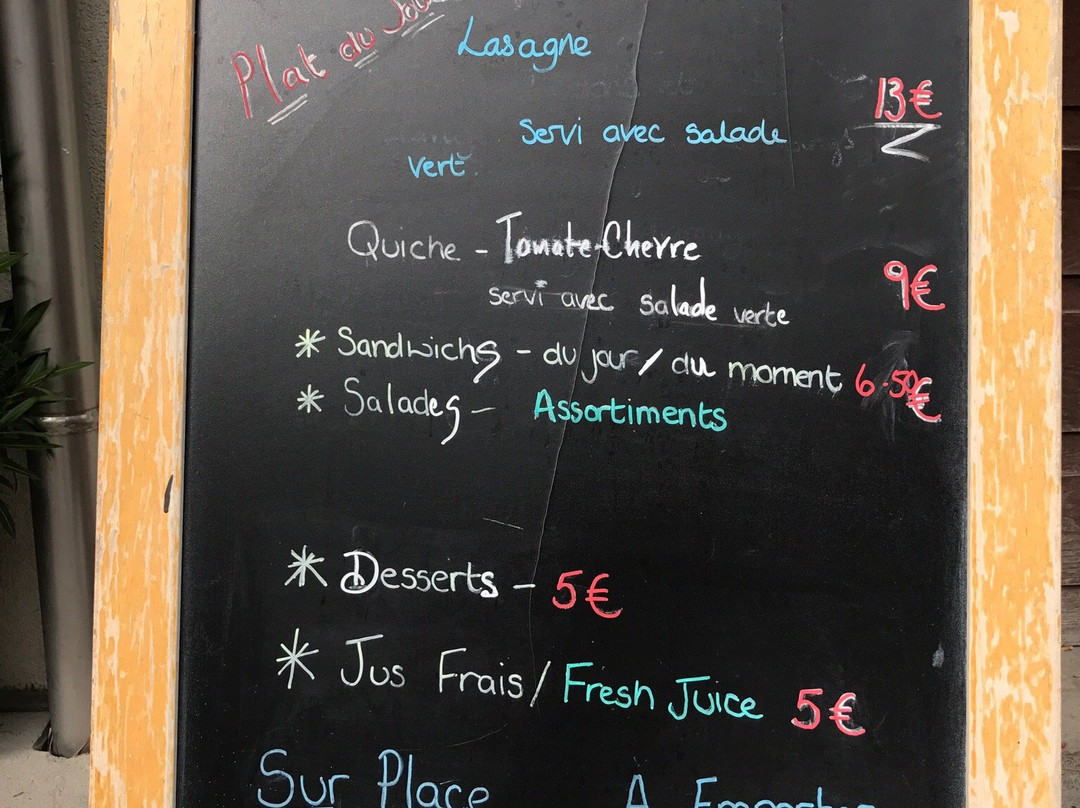 Plat du Jour
Lasagne
13€
Servi avec salade
vert
Quiche - Tomate-Chevre
9€
servi avec salade verte
* Sandwichs - du jour / du moment 6.50€
* Salades - Assortiments
* Desserts - 5€
* Jus Frais / Fresh Juice 5€
Sur Place A Emporter